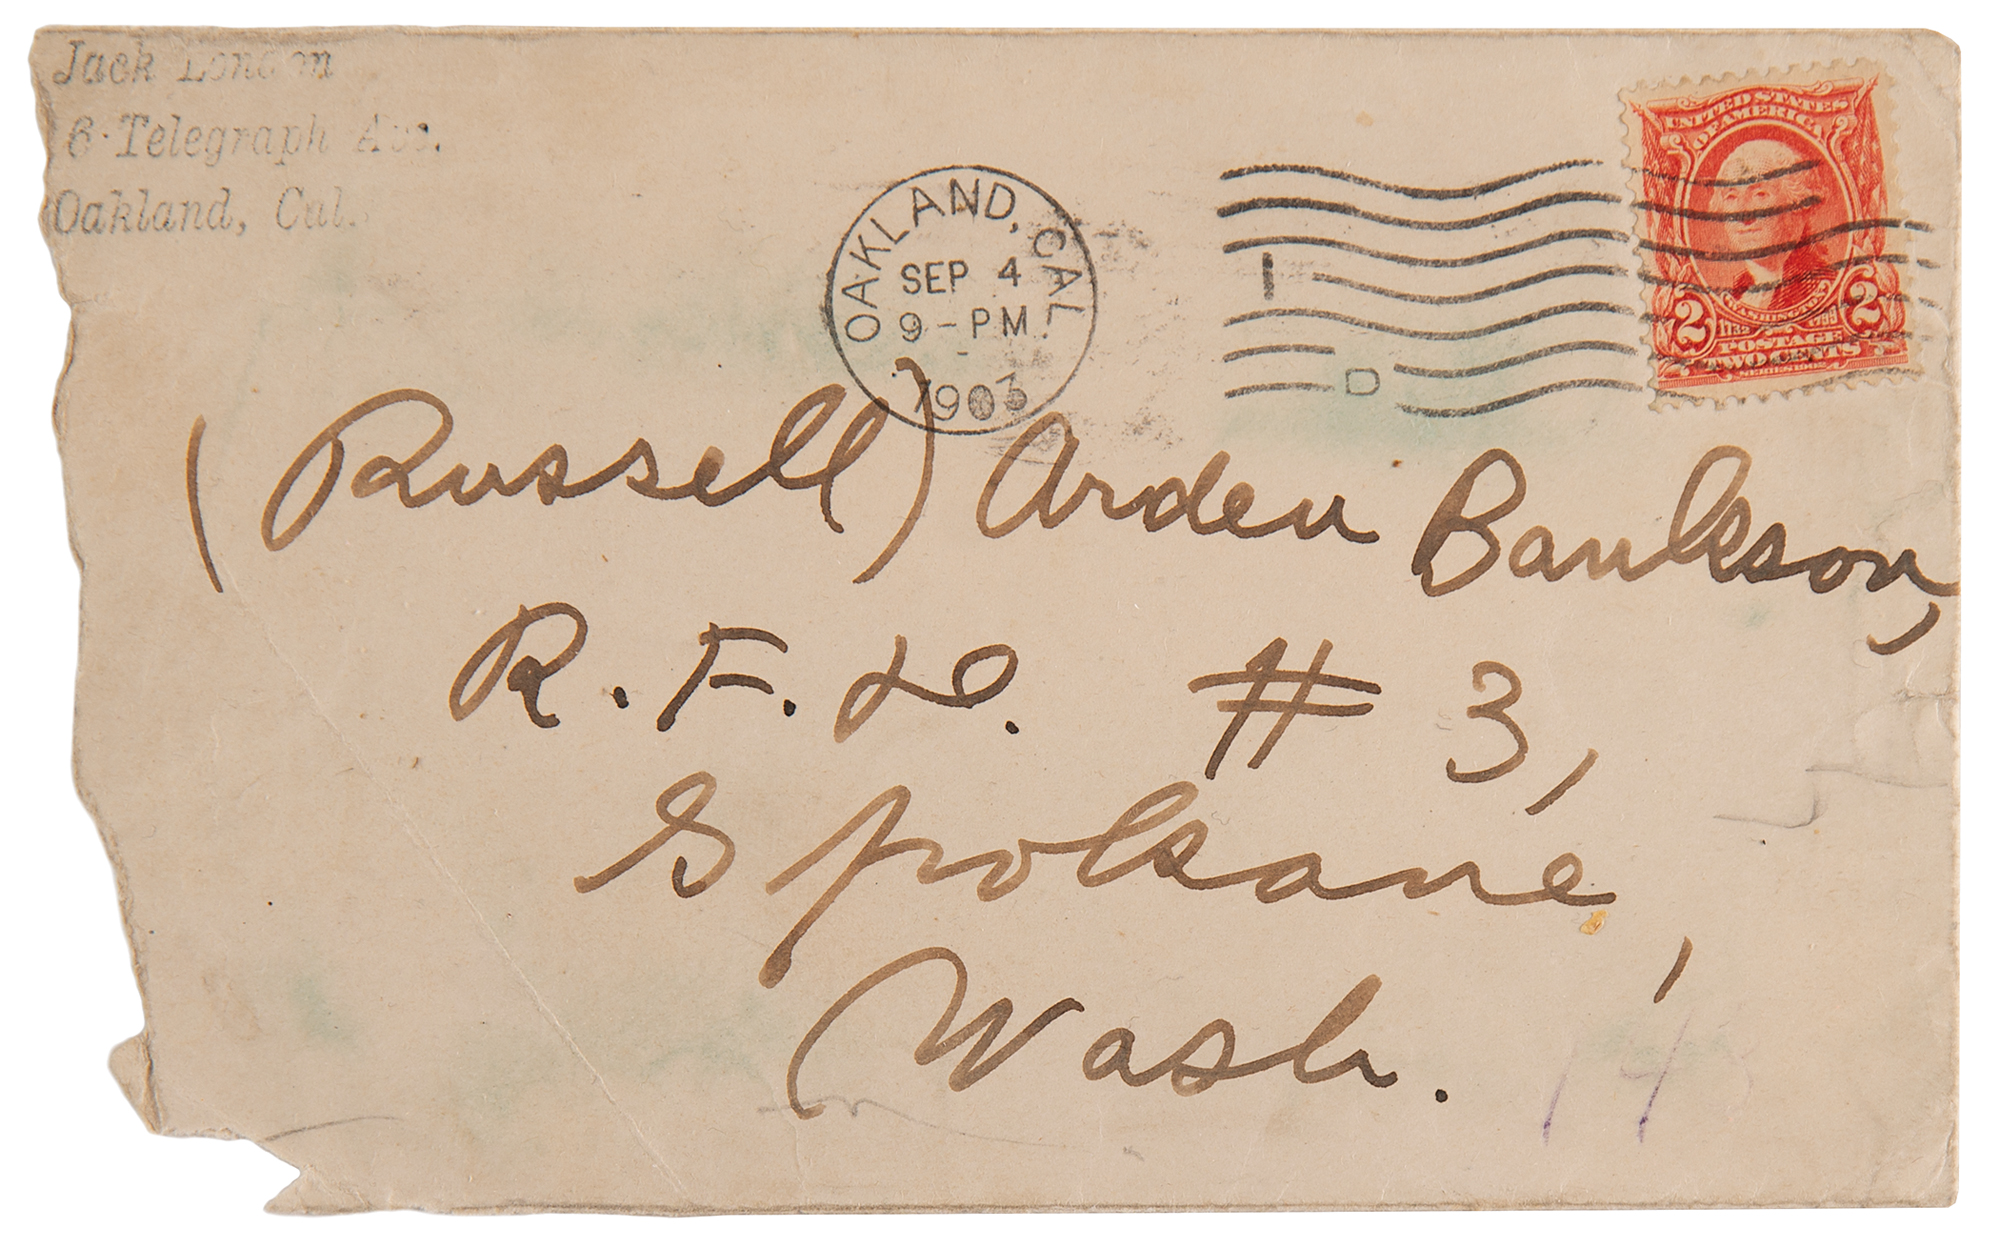 Jack London
6 Telegraph Ave.
Oakland, Cal.
OAKLAND, CAL.
SEP 4
9 - PM
1903
1
D
UNITED STATES
OF AMERICA
WASHINGTON
1732 1799
2 2
POSTAGE
TWO CENTS
SERIES 1902
(Russell) Arden Bankson,
R. F. D. # 3,
Spokane,
Wash.